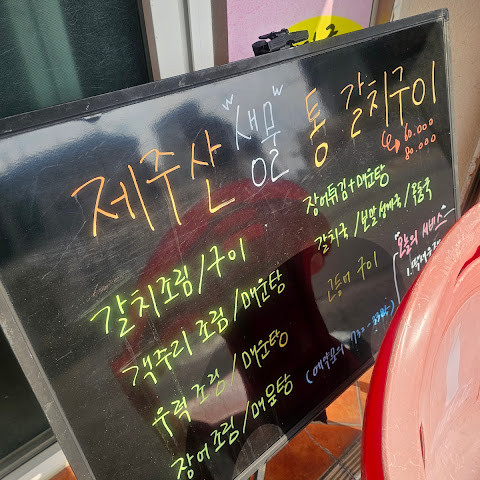 제주산 "생물" 통 갈치구이
60.000
80.000
갈치조림/구이
객주리 조림/매운탕
우럭 조림/매운탕
장어 조림/매운탕
장어튀김+매운탕
갈치국/보말성게국/
고등어 구이
"오늘의 서비스"